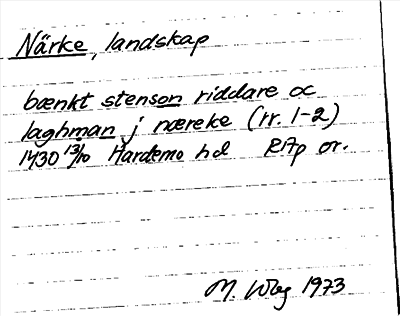 Närke, landskap
bænkt stenson riddare oc
laghman j næreke (rr. 1-2)
1430 13/10 Hardemo hd RAp or.
M. 1973